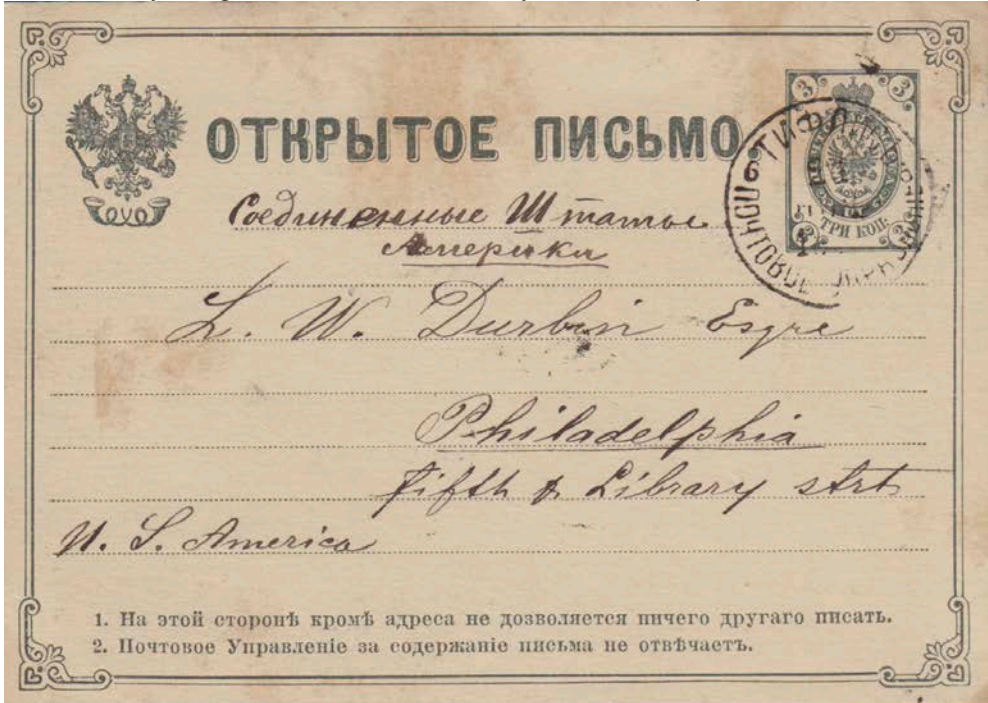 ОТКРЫТОЕ ПИСЬМО.
3 3
ТРИ КОП.
3 3
Соединенные Штаты
Америки
L. W. Durbin Esqre
Philadelphia
Fifth & Library strt
U. S. America
1. На этой сторонѣ кромѣ адреса не дозволяется ничего другаго писать.
2. Почтовое Управленіе за содержаніе письма не отвѣчаетъ.